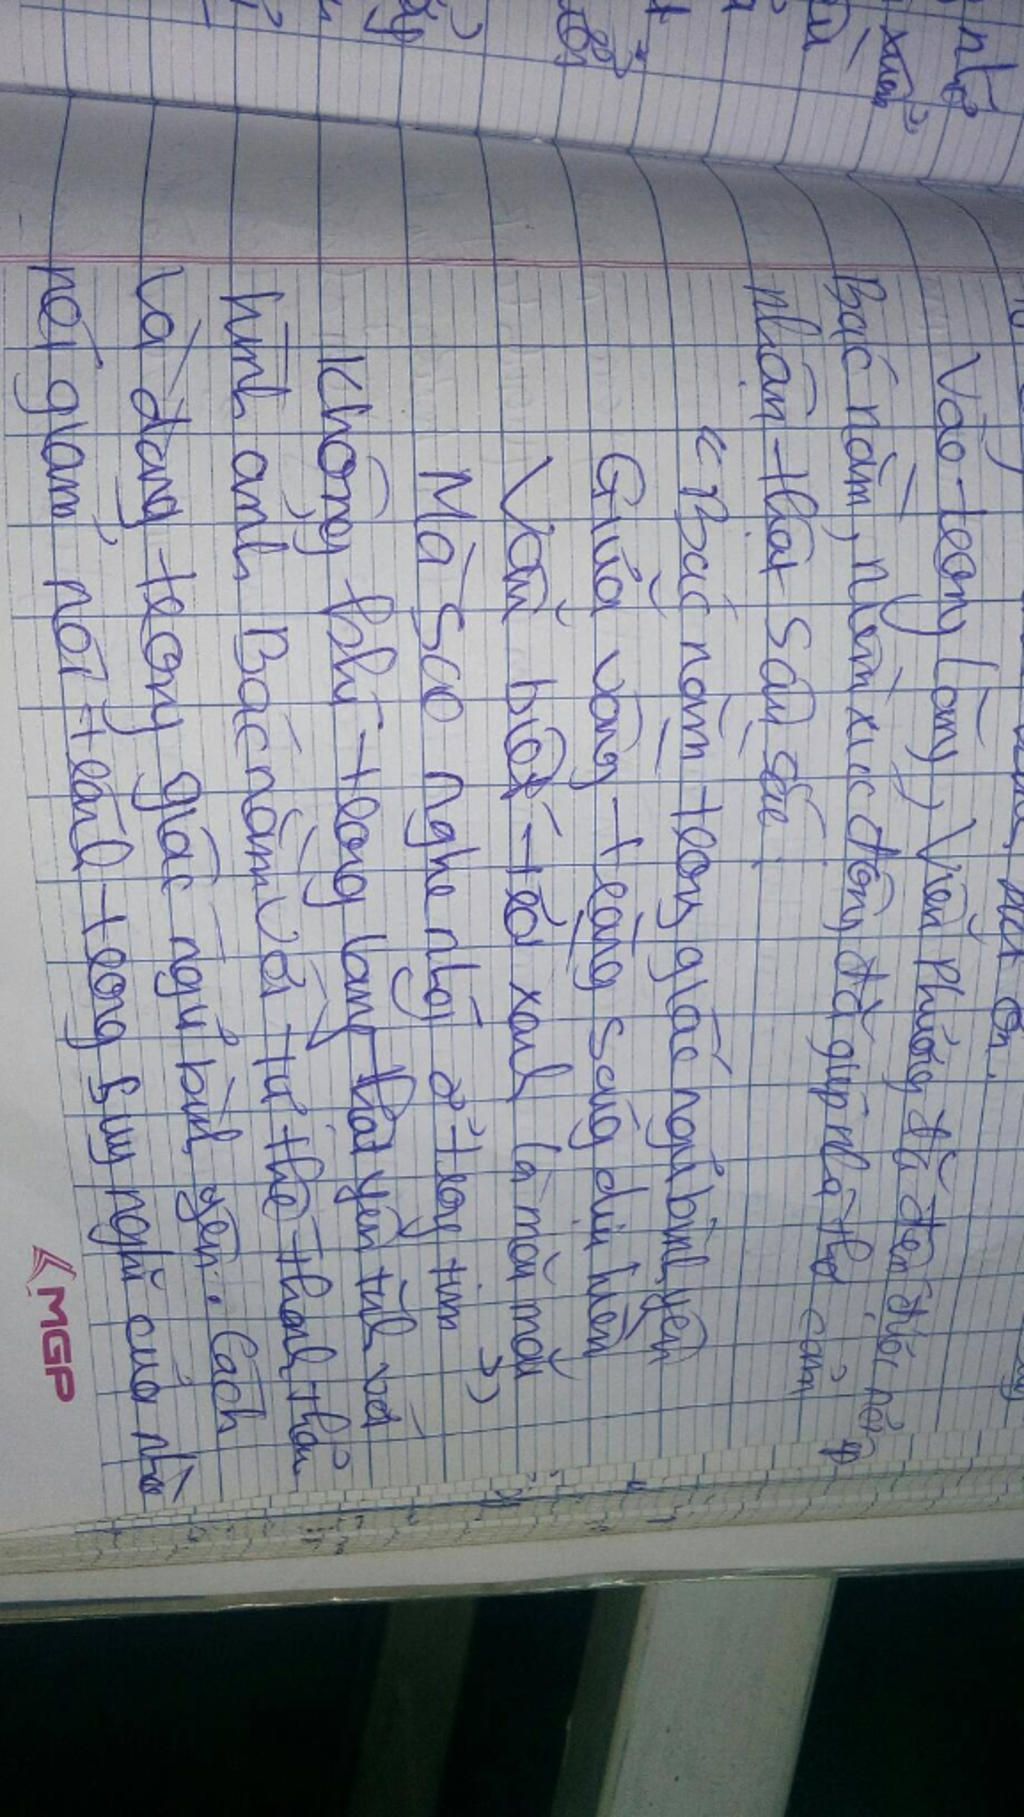 Vào trong lăng, Viễn Phương đã đến được nơi
Bác nằm, niềm xúc động đã giúp nhà thơ cảm
nhận thật sâu sắc.
"Bác nằm trong giấc ngủ bình yên
Giữa vầng trăng sáng dịu hiền
Vẫn biết trời xanh là mãi mãi
Mà sao nghe nhói ở trong tim"
Không khí trong lăng thật yên tĩnh với
hình ảnh Bác nằm với tư thế thanh thản
và đang trong giấc ngủ bình yên. Cách
nói giảm nói tránh trong suy nghĩ của nhà
MGP